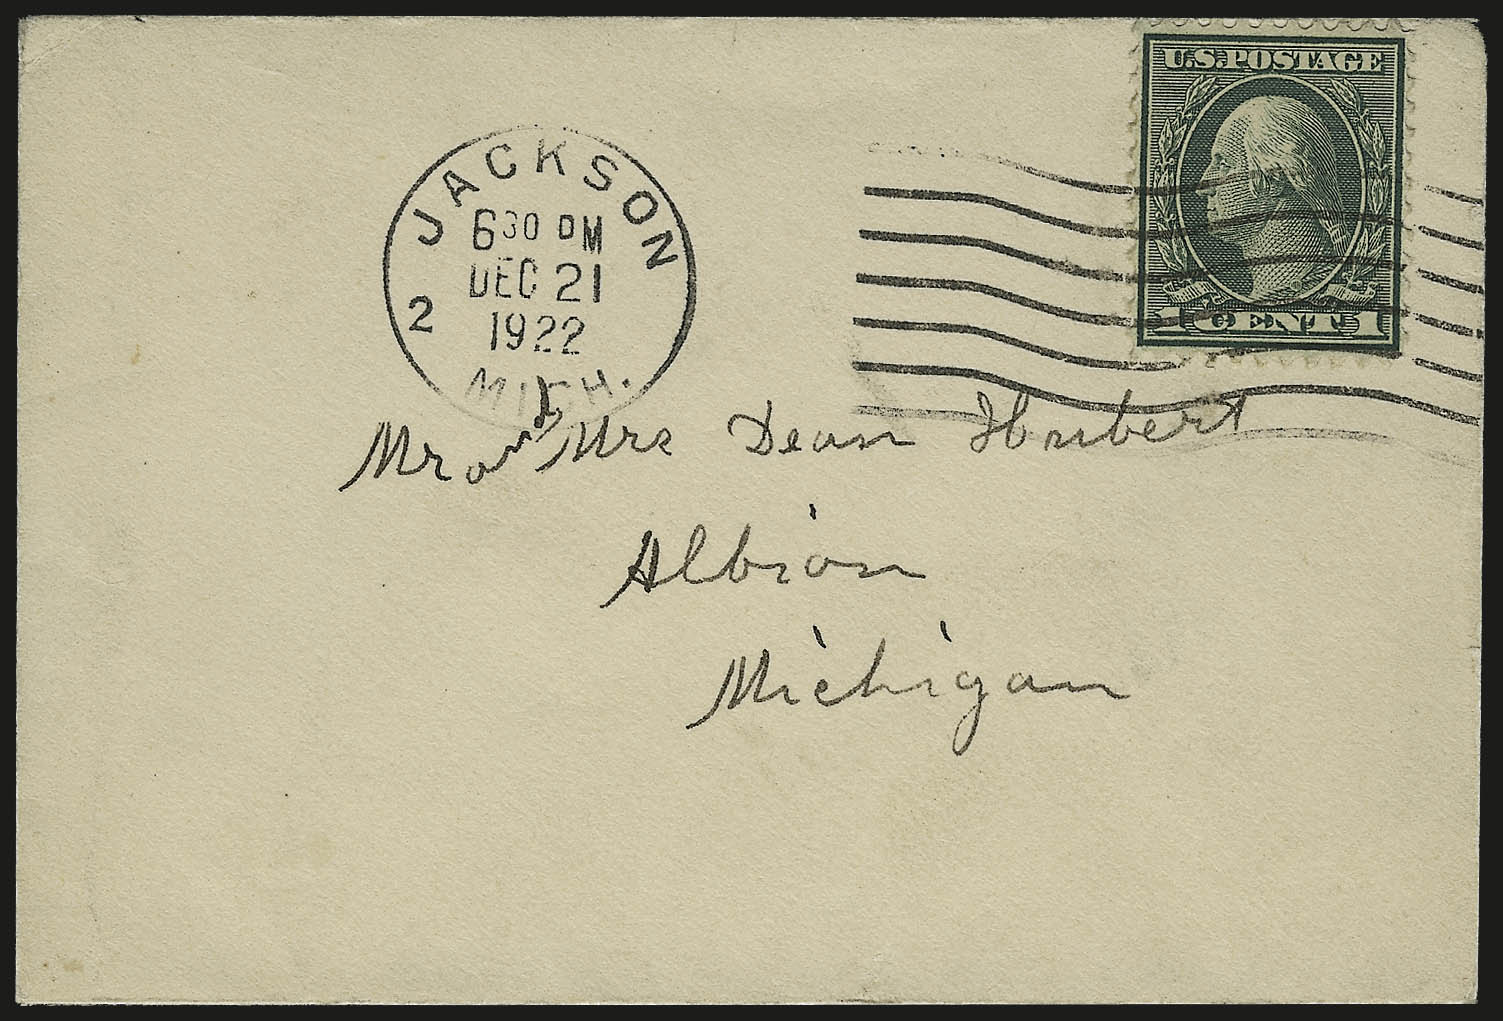 U.S. POSTAGE
1 CENT 1
JACKSON
2
6 30 PM
DEC 21
1922
MICH.
Mr and Mrs Dean Hubert
Albion
Michigan